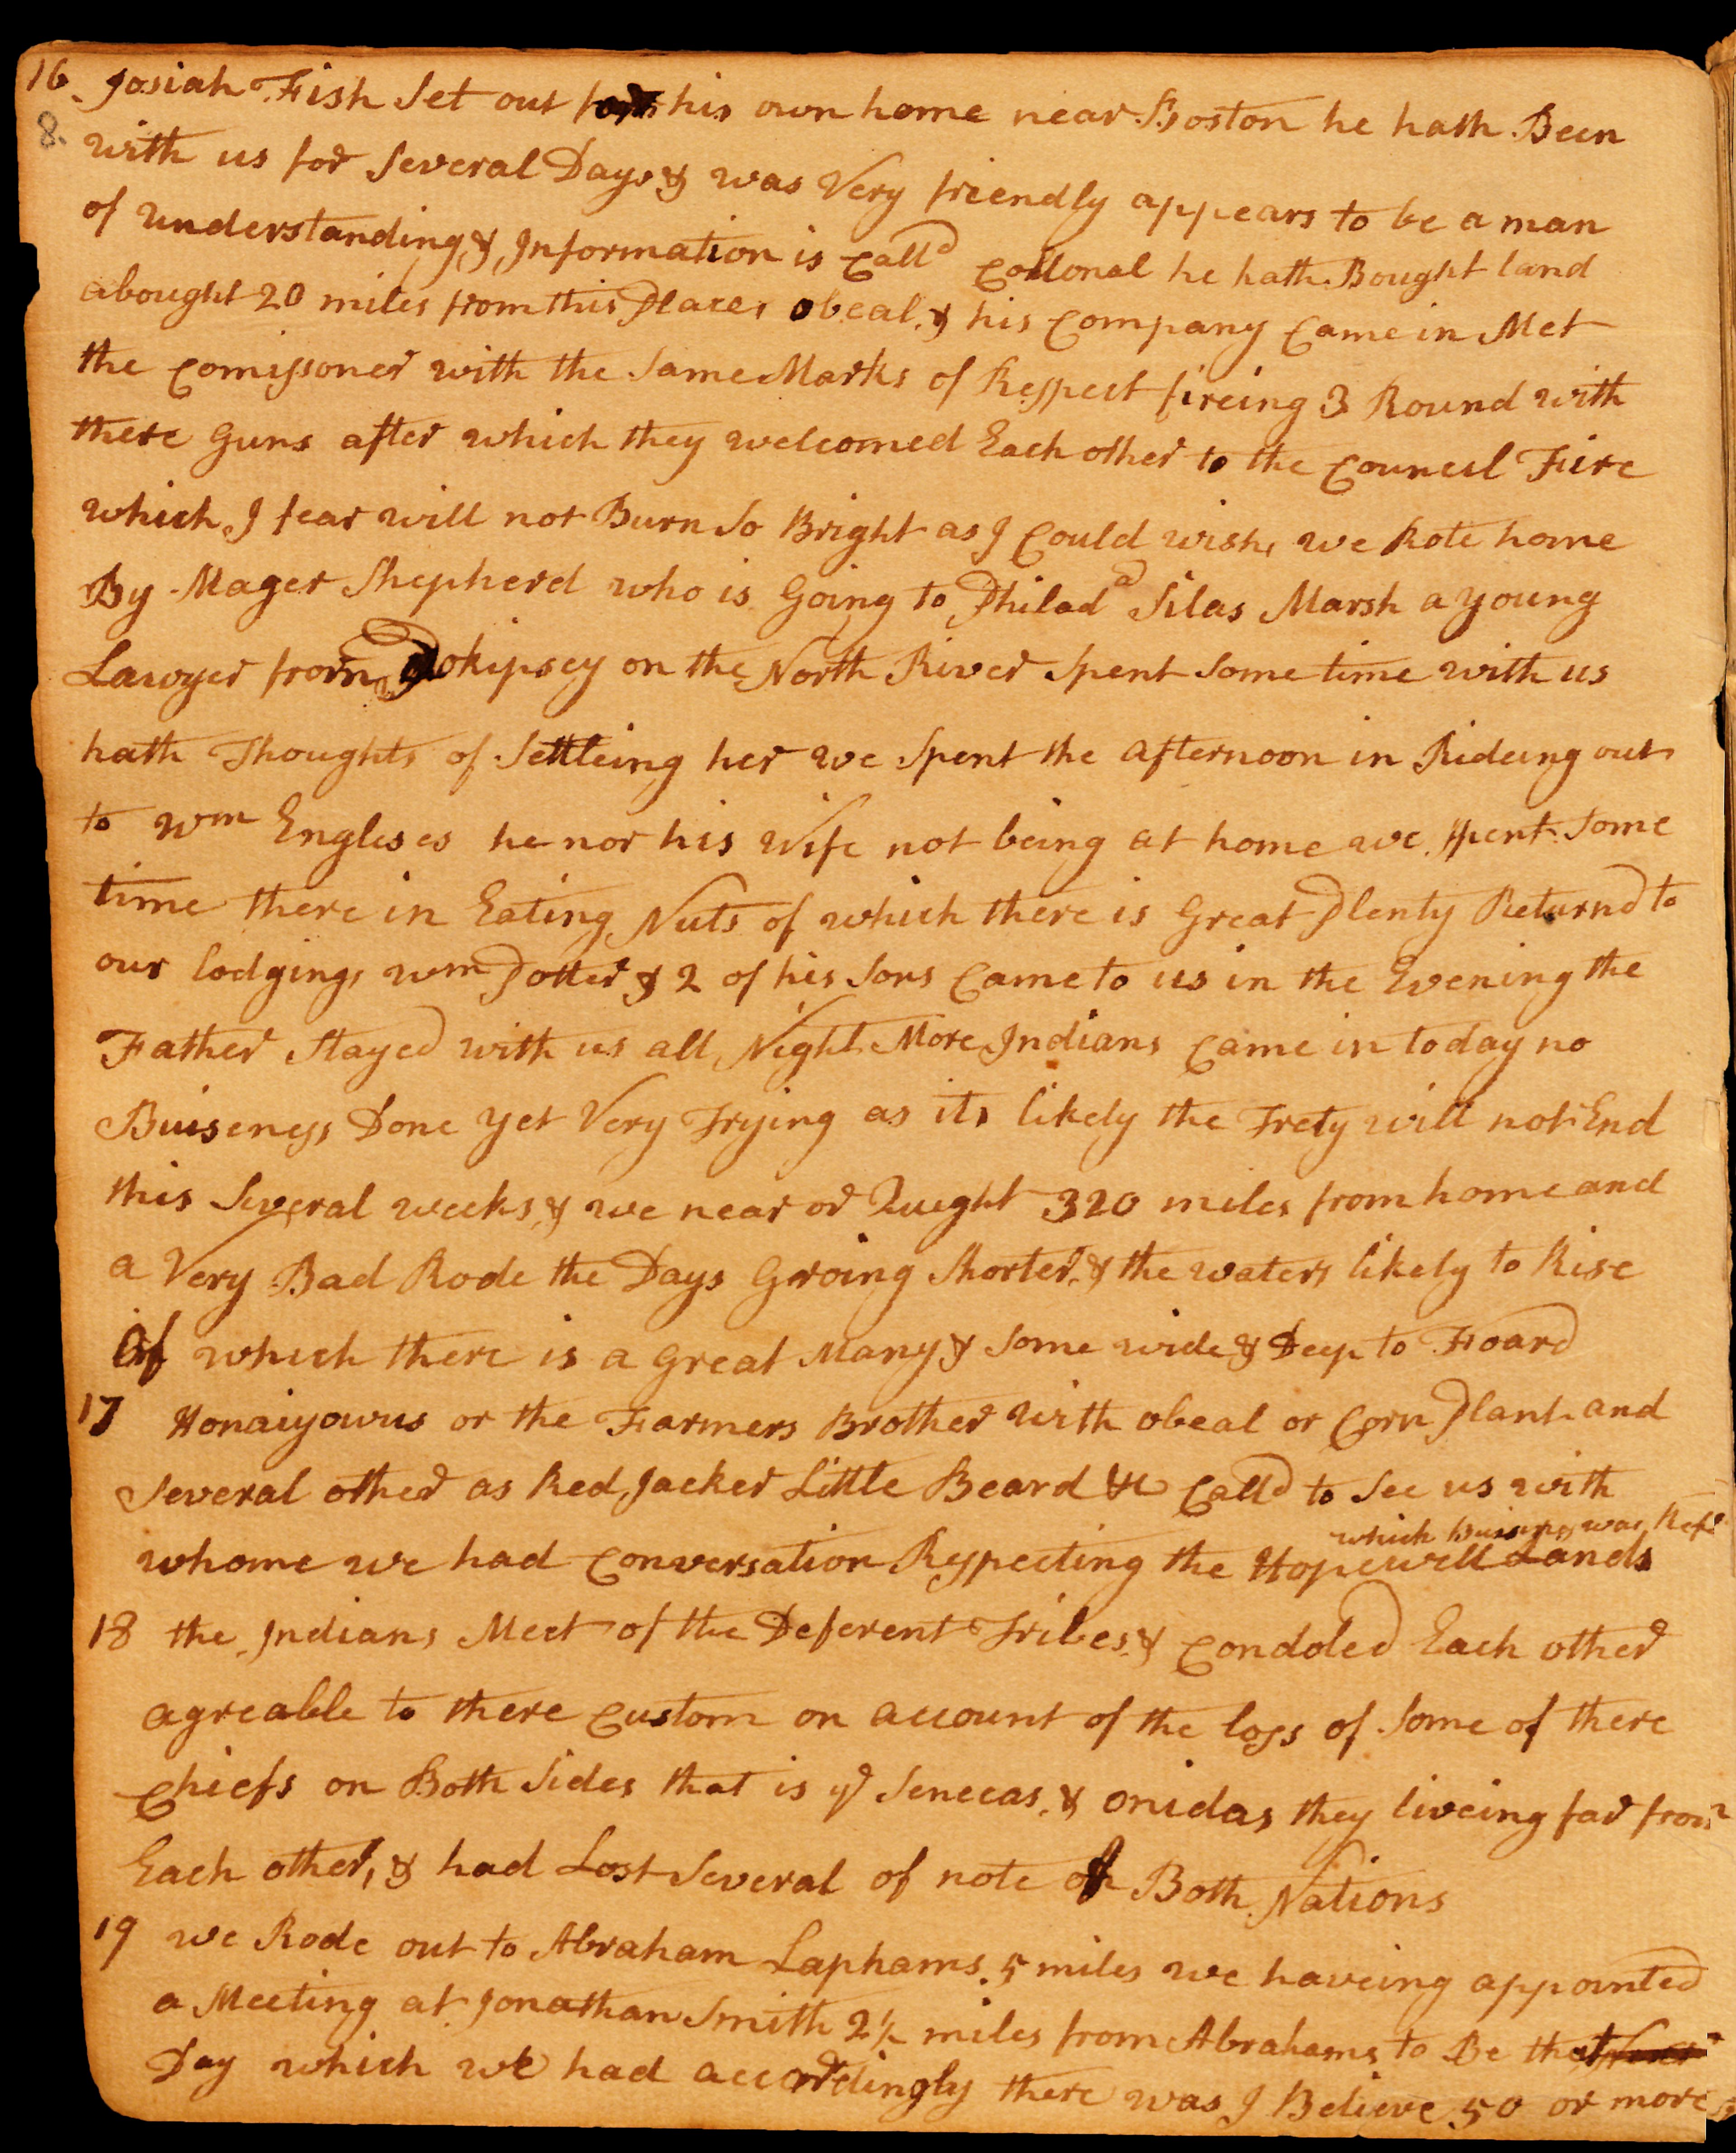 16 Josiah Fish Set out for his own home near Boston he hath Been
8.
with us for Several Days & was Very friendly appears to be a man
of understanding & Information is Calld Collonal he hath Bought land
abought 20 miles from this Place, obeal & his Company Came in Met
the Comissoner with the Same Marks of Respect fireing 3 Round with
there Guns after which they welcomed Each other to the Councul Fire
which I fear will not Burn So Bright as I Could wish, we Rote home
By Mager Shepherd who is Going to Philada Silas Marsh a young
Lawyer from Pokipsey on the North River Spent Some time with us
hath Thoughts of Settleing her we Spent the afternoon in Rideing out
to Wm Engleses he nor his Wife not being at home we Spent Some
time there in Eating Nuts of which there is Great Plenty Returnd to
our lodging, wm Potter & 2 of his Sons Came to us in the Evening the
Father Stayed with us all Night More Indians Came in to day no
Buiseness Done yet Very Trying as its likely the Trety will not End
this Several weeks, & we near or Quight 320 miles from home and
a Very Bad Rode the Days Growing Shorter, & the waters likely to Rise
of which there is a Great Many & Some wide & Deep to Foard
17 Honaiyowus or the Farmers Brother with obeal or Corn Plant and
Several other as Red Jacker Little Beard &c Calld to See us with
which buisness was Refd
whome we had Conversation Respecting the Hopewell Lands
18 the Indians Meet of the Deferent Tribes & Condoled Each other
agreable to there Custom on account of the loss of Some of there
Chiefs on Both Sides that is ye Senecas, & onidas they liveing far from
Each other, & had Lost Several of note of Both Nations
19 we Rode out to Abraham Laphams 5 miles we haveing appointed
a Meeting at Jonathan Smith 2½ miles from Abrahams to Be that
Day which we had accordingly there was I Believe 50 or more